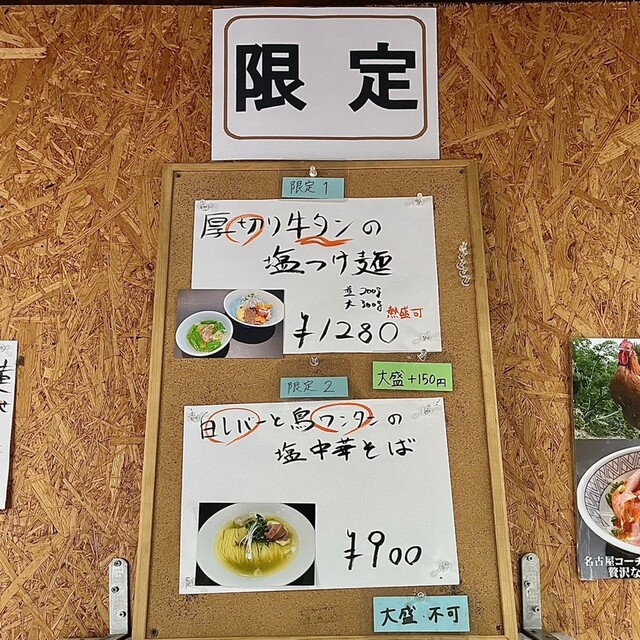 限 定
限定 1
厚切り牛タンの
塩つけ麺
並 200g
大 300g
熱盛可
¥1280
大盛 +150円
限定 2
白レバーと鳥ワンタンの
塩中華そば
¥900
大盛・不可
名古屋コー
贅沢な